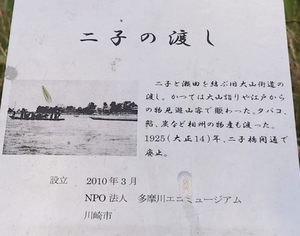 二子の渡し
二子と瀬田を結ぶ旧大山街道の
渡し。かつては大山詣りや江戸から
の物見遊山客で賑わった。タバコ、
鮎、炭など相州の物産も渡った。
1925(大正14)年、二子橋開通で
廃止。
設立 2010年3月
NPO法人 多摩川エコミュージアム
川崎市